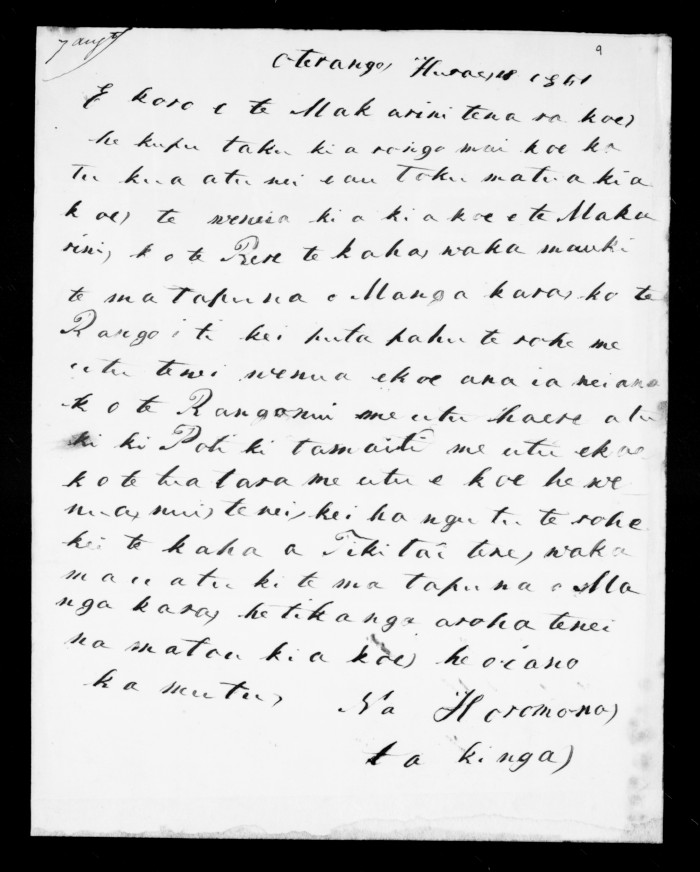 7 augt
9
Oterango, Hurae, 18 1861
E koro e te Mak arini tena ra koe,
he kupu taku ki a rongo mai koe ko
tu ku a atu nei e au toku matua kia
koe, te wenua ki a ki a koe e te Maka
rini, k o te Rere te kaha, waka mau ki
te ma tapuna o Manga kara, ko te
Rango i ti kei puta pahu te rohe me
utu tenei wenua ekoe ana ia nei ano
k o te Rangonui me utu haere atu
ki ki Poti ki tamaiti me utu ekoe
ko te tua tara me utu e koe he we
nua, nui, tenei, kei ha ngu tu te rohe
kei te kaha a Tiki tai tere, waka
m a u atu ki te ma tapu na o Ma
nga kara, he tika nga aroha tenei
na matou ki a koe, he oi ano
ka mutu, Na Horomona,
ta kinga,